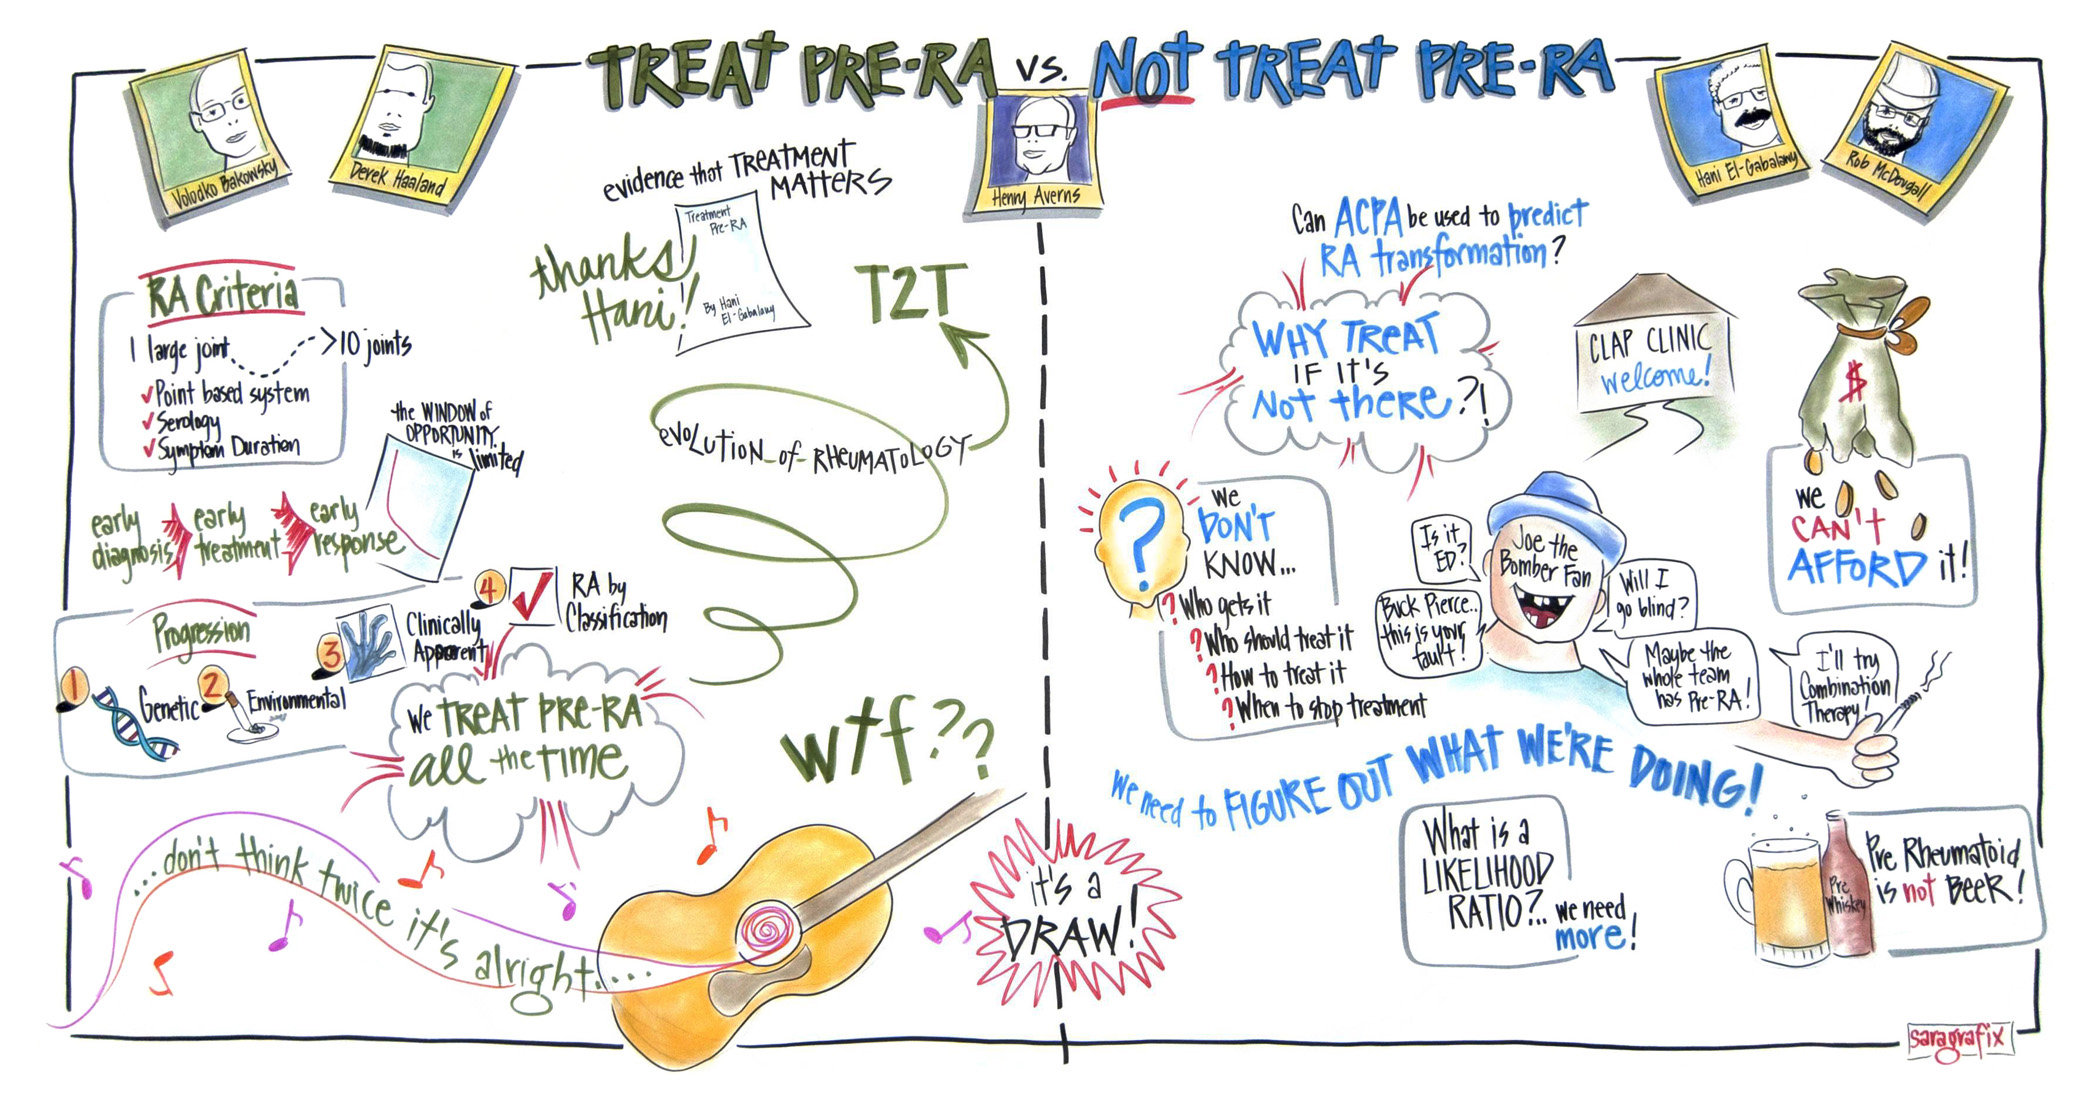 TREAT PRE-RA vs. NOT TREAT PRE-RA
Volodko Bakowsky
Derek Haaland
Henny Averns
Hani El-Gabalawy
Rob McDougall
evidence that TREATMENT
MATTERS
Treatment
Pre-RA
By Hani
El-Gabalawy
thanks
Hani!
T2T
RA Criteria
1 large joint
>10 joints
✓Point based system
✓Serology
✓Symptom Duration
the WINDOW of
OPPORTUNITY
is limited
early
diagnosis
early
treatment
early
response
EVOLUTION_of_RHEUMATOLOGY
Progression
1
Genetic
2
Environmental
3
Clinically
Apparent
4
RA by
Classification
We TREAT PRE-RA
all the TIME
wtf??
...don't think twice it's alright....
it's a
DRAW!
Can ACPA be used to predict
RA transformation?
WHY TREAT
IF IT'S
NOT THERE?!
CLAP CLINIC
welcome!
$
we
CAN'T
AFFORD it!
?
we
DON'T
KNOW...
? Who gets it
? Who should treat it
? How to treat it
? When to stop treatment
Is it
ED?
Joe the
Bomber Fan
Buck Pierce..
this is your
fault!
Will I
go blind?
Maybe the
whole team
has Pre-RA!
I'll try
Combination
Therapy!
We need to FIGURE OUT WHAT WE'RE DOING!
What is a
LIKELIHOOD
RATIO?...
we need
more!
Pre
Whiskey
Pre Rheumatoid
is not BEER!
saragrafix